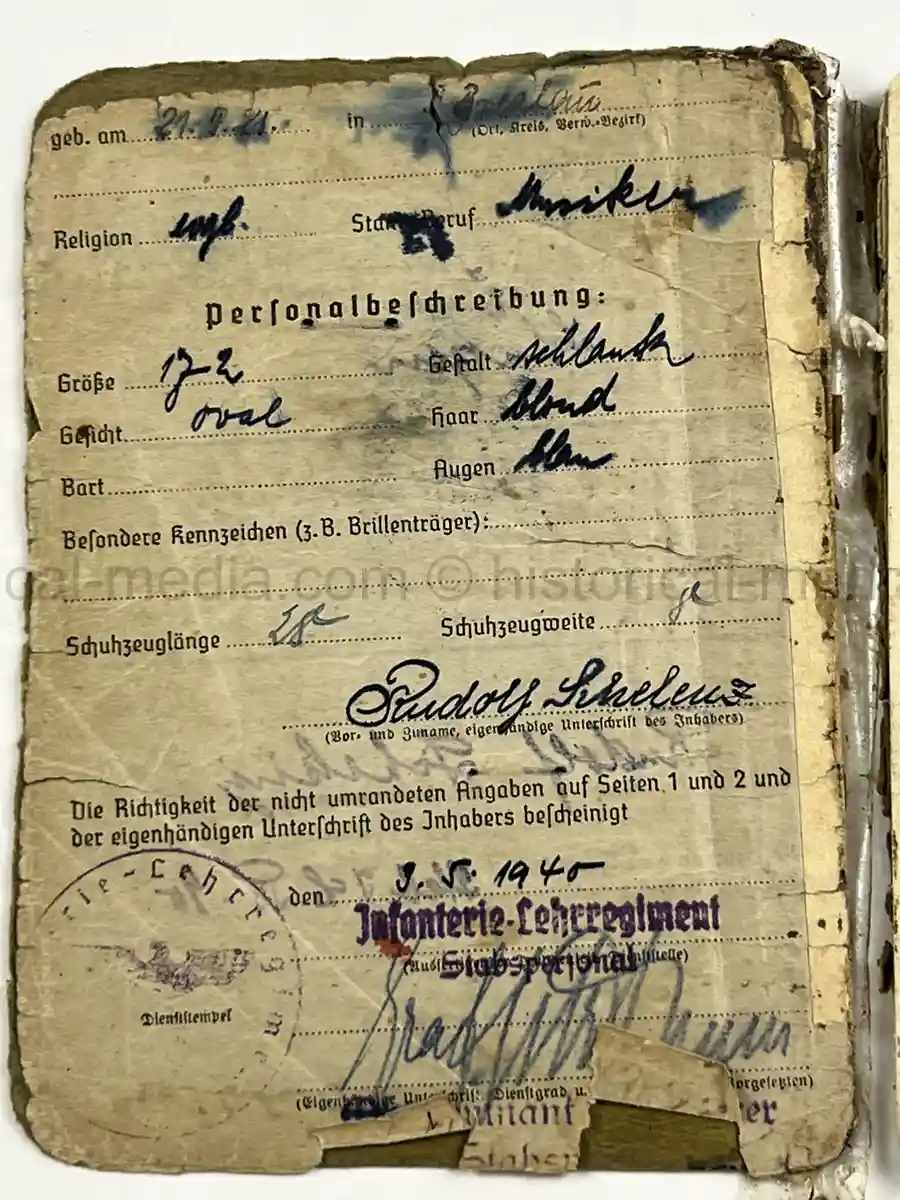 geb. am 21. 9. 21. in Breslau
(Ort, Kreis, Verw.-Bezirk)
Religion evgl. Stand, Beruf Musiker
Personalbeschreibung:
Größe 172 Gestalt schlank
Gesicht oval Haar blond
Bart Augen blau
Besondere Kennzeichen (z. B. Brillenträger):
cal-media.com © historical-media
Schuhzeuglänge 28 Schuhzeugweite
Rudolf Schelenz
(Vor- und Zuname, eigenhändige Unterschrift des Inhabers)
Die Richtigkeit der nicht umrandeten Angaben auf Seiten 1 und 2 und
der eigenhändigen Unterschrift des Inhabers bescheinigt
den 3. 5. 1940
Infanterie-Lehrregiment
Stabspersonal
rie-Lehrregime
Dienststempel
(Eigenhändige Unterschrift, Dienstgrad u. Vorgesetzten)